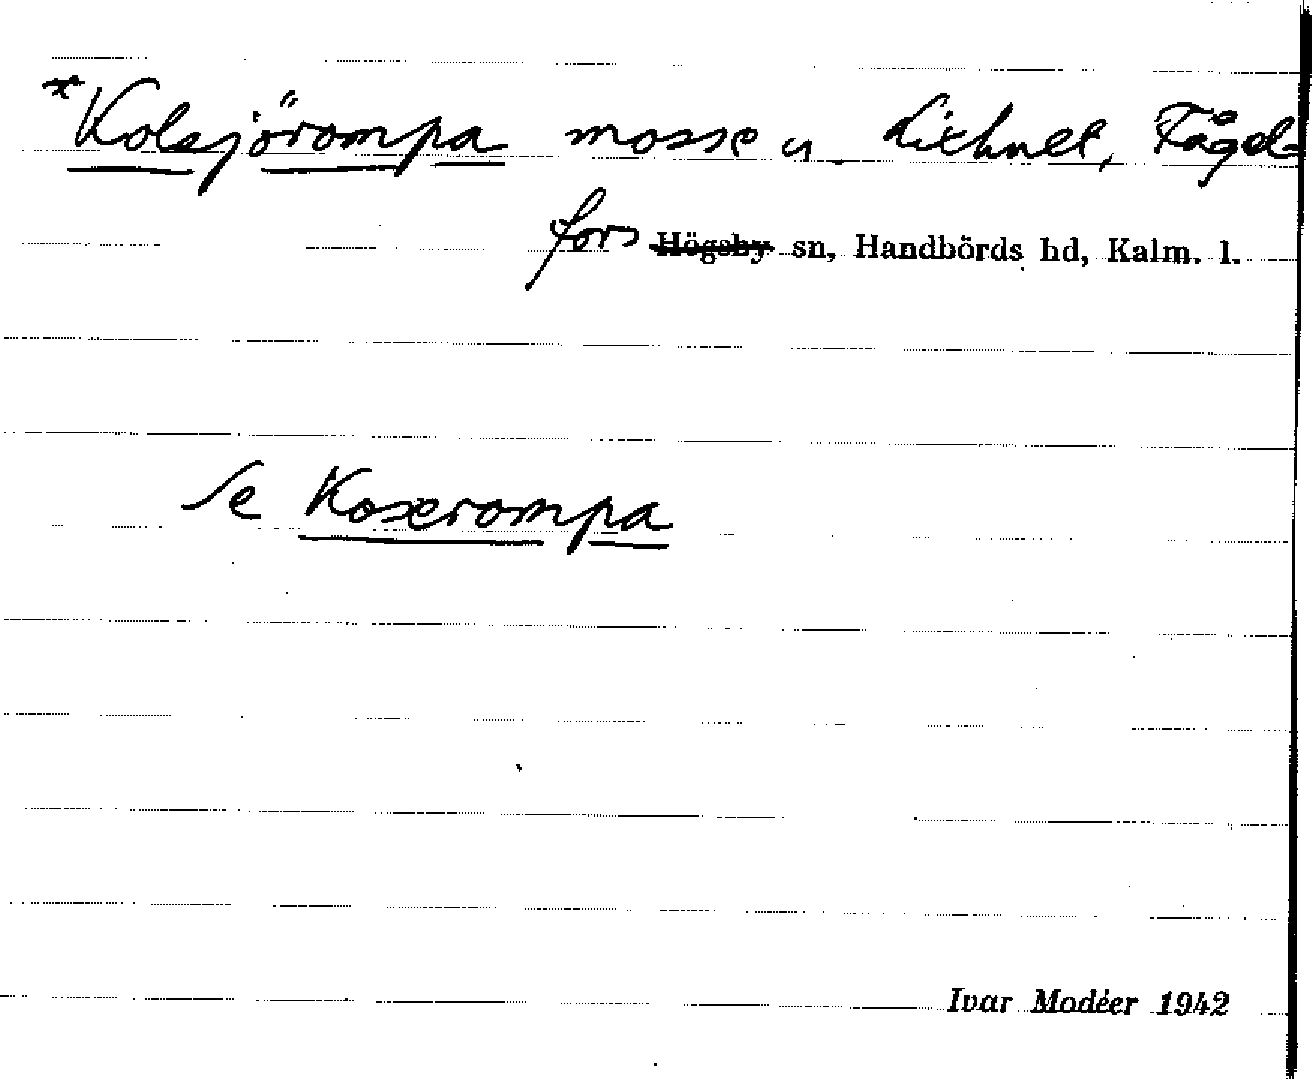 *Kolsjörompa mosse u. Lixhult, Fågel-
fors Högsby sn, Handbörds hd, Kalm. l.
Se Koxerompa
Ivar Modéer 1942